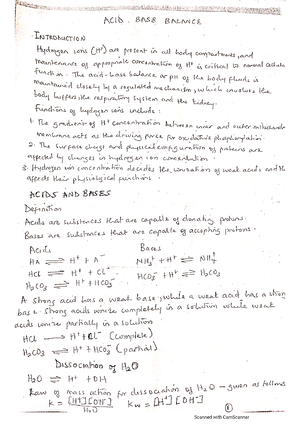 ACID - BASE BALANCE
INTRODUCTION
Hydrogen ions (H⁺) are present in all body compartments and
maintenance of appropriate concentration of H⁺ is critical to normal cellular
function. The acid-base balance or pH of the body fluids is
maintained closely by a regulated mechanism which involves the
body buffers, the respiratory system and the kidney.
Functions of hydrogen ions include:
1. The gradient of H⁺ concentration between inner and outer mitochondrial
membrane acts as the driving force for oxidative phosphorylation.
2. The surface charge and physical configuration of proteins are
affected by changes in hydrogen ion concentration.
3. Hydrogen ion concentration decides the ionisation of weak acids and thus
affects their physiological functions.
ACIDS AND BASES
Definition
Acids are substances that are capable of donating protons.
Bases are substances that are capable of accepting protons.
Acids Bases
HA ⇌ H⁺ + A⁻ NH₃ + H⁺ ⇌ NH₄⁺
HCl ⇌ H⁺ + Cl⁻ HCO₃⁻ + H⁺ ⇌ H₂CO₃
H₂CO₃ ⇌ H⁺ + HCO₃⁻
A strong acid has a weak base, while a weak acid has a strong
base. Strong acids ionize completely in a solution while weak
acids ionize partially in a solution
HCl → H⁺ + Cl⁻ (complete)
H₂CO₃ ⇌ H⁺ + HCO₃⁻ (partial)
Dissociation of H₂O
H₂O ⇌ H⁺ + OH
Law of mass action for dissociation of H₂O - given as follows
K = [H⁺][OH⁻] / H₂O Kw = [H⁺][OH⁻]
Scanned with CamScanner